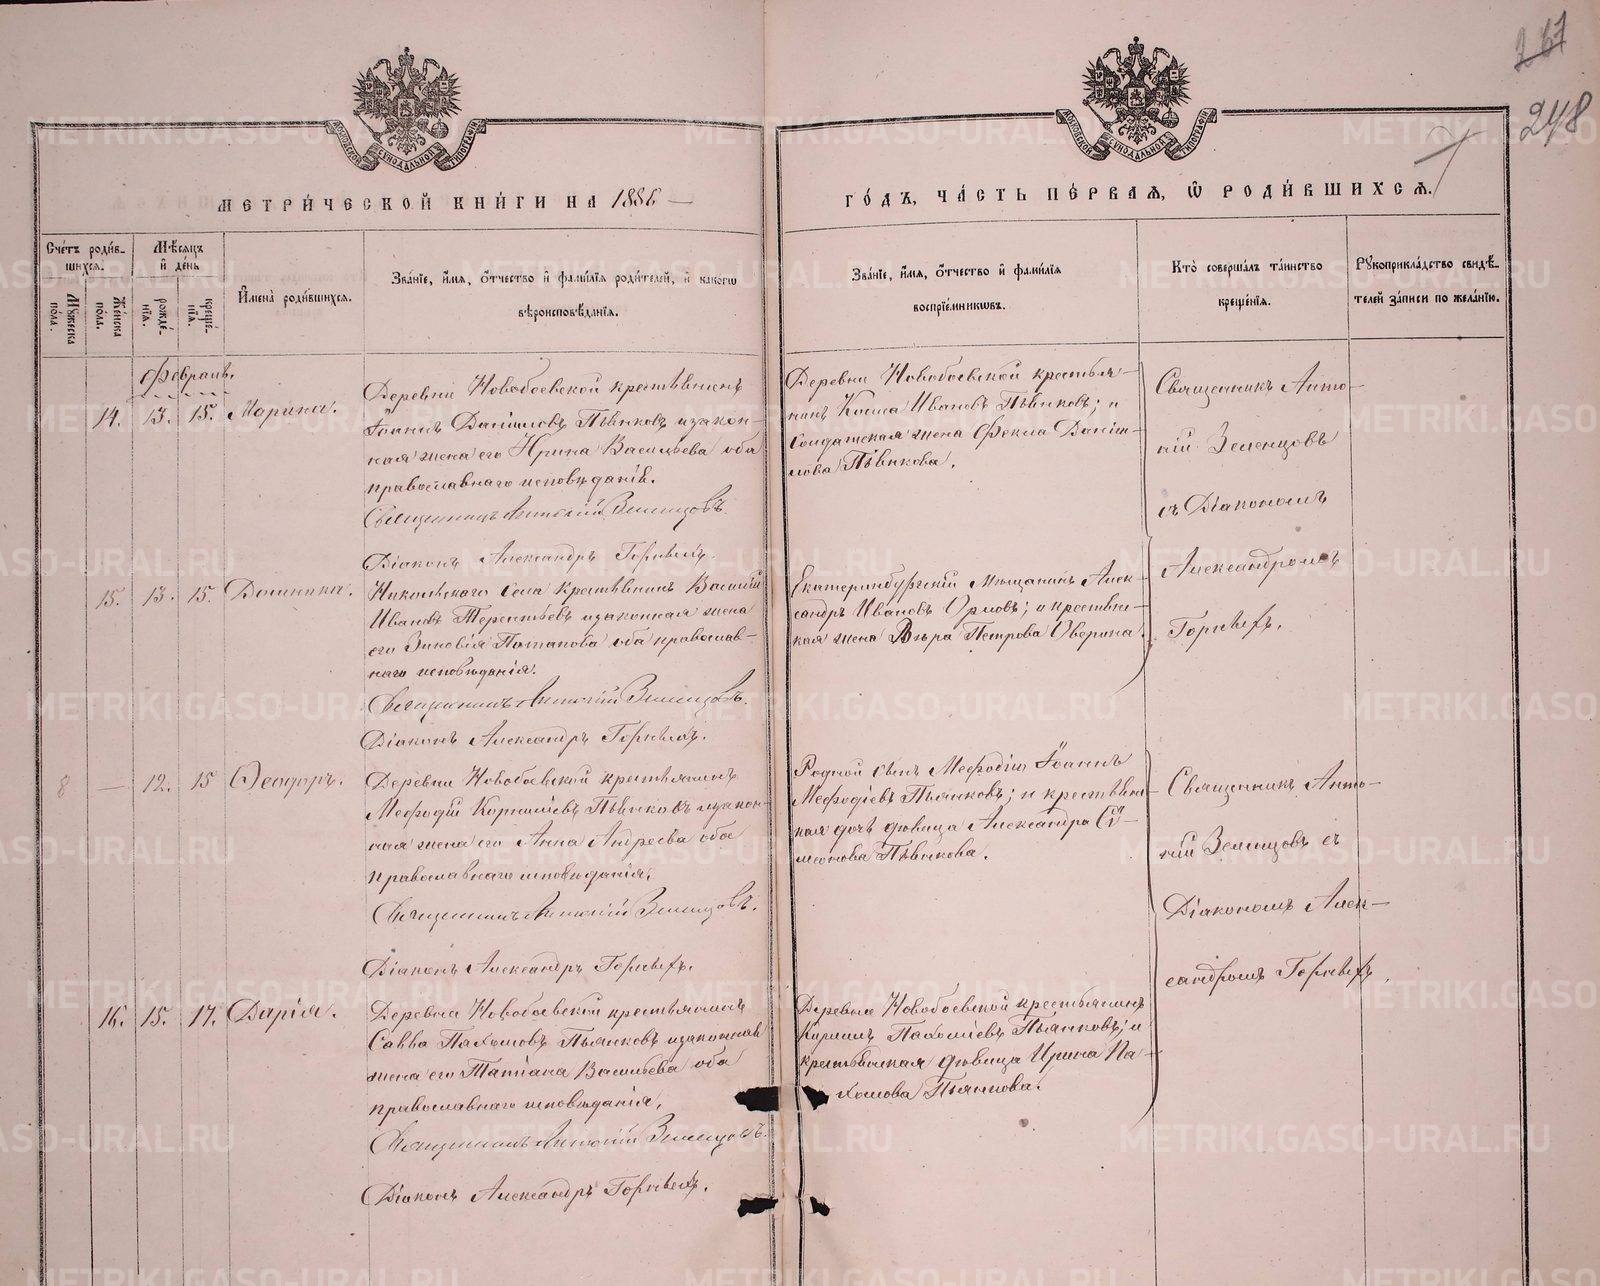 267
248
МЕТРИ́ЧЕСКОЙ КНИ́ГИ НА 1886
ГО́ДЪ, ЧА́СТЬ ПЕ́РВАЯ, Ѡ РОДИ́ВШИХСЯ.
МОСКОВСКОЙ СѴНОДАЛЬНОЙ ТИПОГРАФІИ
МОСКОВСКОЙ СѴНОДАЛЬНОЙ ТИПОГРАФІИ
Сче́тъ роди́в-
шихся.
Мѣ́сяцъ
и де́нь
Мꙋжеска по́ла.
Же́нска по́ла.
рожде́-
нїя.
креще́-
нїя.
И҆мена̀ роди́вшихся.
Зва́нїе, и҆́мя, ѻ҆́тчество и҆ фами́лїя роди́телей, и҆ какогѡ
вѣроисповѣ́данїя.
Зва́нїе, и҆́мя, ѻ҆́тчество и҆ фами́лїя
воспрїе́мникѡвъ.
Кто̀ соверша́лъ та́инство
креще́нїя.
Рꙋкоприкла́дство свидѣ́-
телей за́писи по жела́нїю.
Февраль.
14. 13. 15. Марина.
Деревни Новобоевской крестьянинъ
Іоаннъ Даниловъ Пьянковъ и закон-
ная жена его Ирина Васильева оба
православнаго исповѣданія.
Священникъ Антоній Зеленцовъ
Діаконъ Александръ Горныхъ.
Деревни Новобоевской крестья-
нинъ Косма Ивановъ Пьянковъ; и
Солдатская жена Фекла Даніи-
лова Пьянкова.
Священникъ Анто-
ній Зеленцовъ
съ Діакономъ
Александромъ
Горныхъ.
15. 13. 15. Домника.
Никольскаго Села Крестьянинъ Василій
Ивановъ Терентьевъ и законная жена
его Зиновія Потапова оба православ-
наго исповѣданія.
Священникъ Антоній Зеленцовъ.
Діаконъ Александръ Горныхъ.
Екатеринбургскій Мѣщанинъ Алек-
сандръ Ивановъ Орловъ; и крестьян-
ская жена Вѣра Петрова Оверина.
8 — 12. 15 Ѳеодоръ.
Деревни Новобоевской крестьянинъ
Мефодій Корниліевъ Пьянковъ и закон-
ная жена его Анна Андреева оба
православнаго исповѣданія.
Священникъ Антоній Зеленцовъ.
Діаконъ Александръ Горныхъ.
Родной сынъ Мефодія Іоаннъ
Мефодіевъ Пьянковъ; и крестьян-
ская дочь дѣвица Александра Сѵ-
меонова Пьянкова.
Священникъ Анто-
ній Зеленцовъ съ
Діакономъ Алек-
сандромъ Горныхъ.
16. 15. 17. Дарія.
Деревни Новобоевской крестьянинъ
Савва Пахомовъ Пьянковъ и законная
жена его Татіана Васильева оба
православнаго исповѣданія.
Священникъ Антоній Зеленцовъ.
Діаконъ Александръ Горныхъ.
Деревни Новобоевской крестьянинъ
Кириллъ Пахоміевъ Пьянковъ; и
крестьянская дѣвица Ирина Па-
хомова Пьянкова.
METRIKI.GASO-URAL.RU